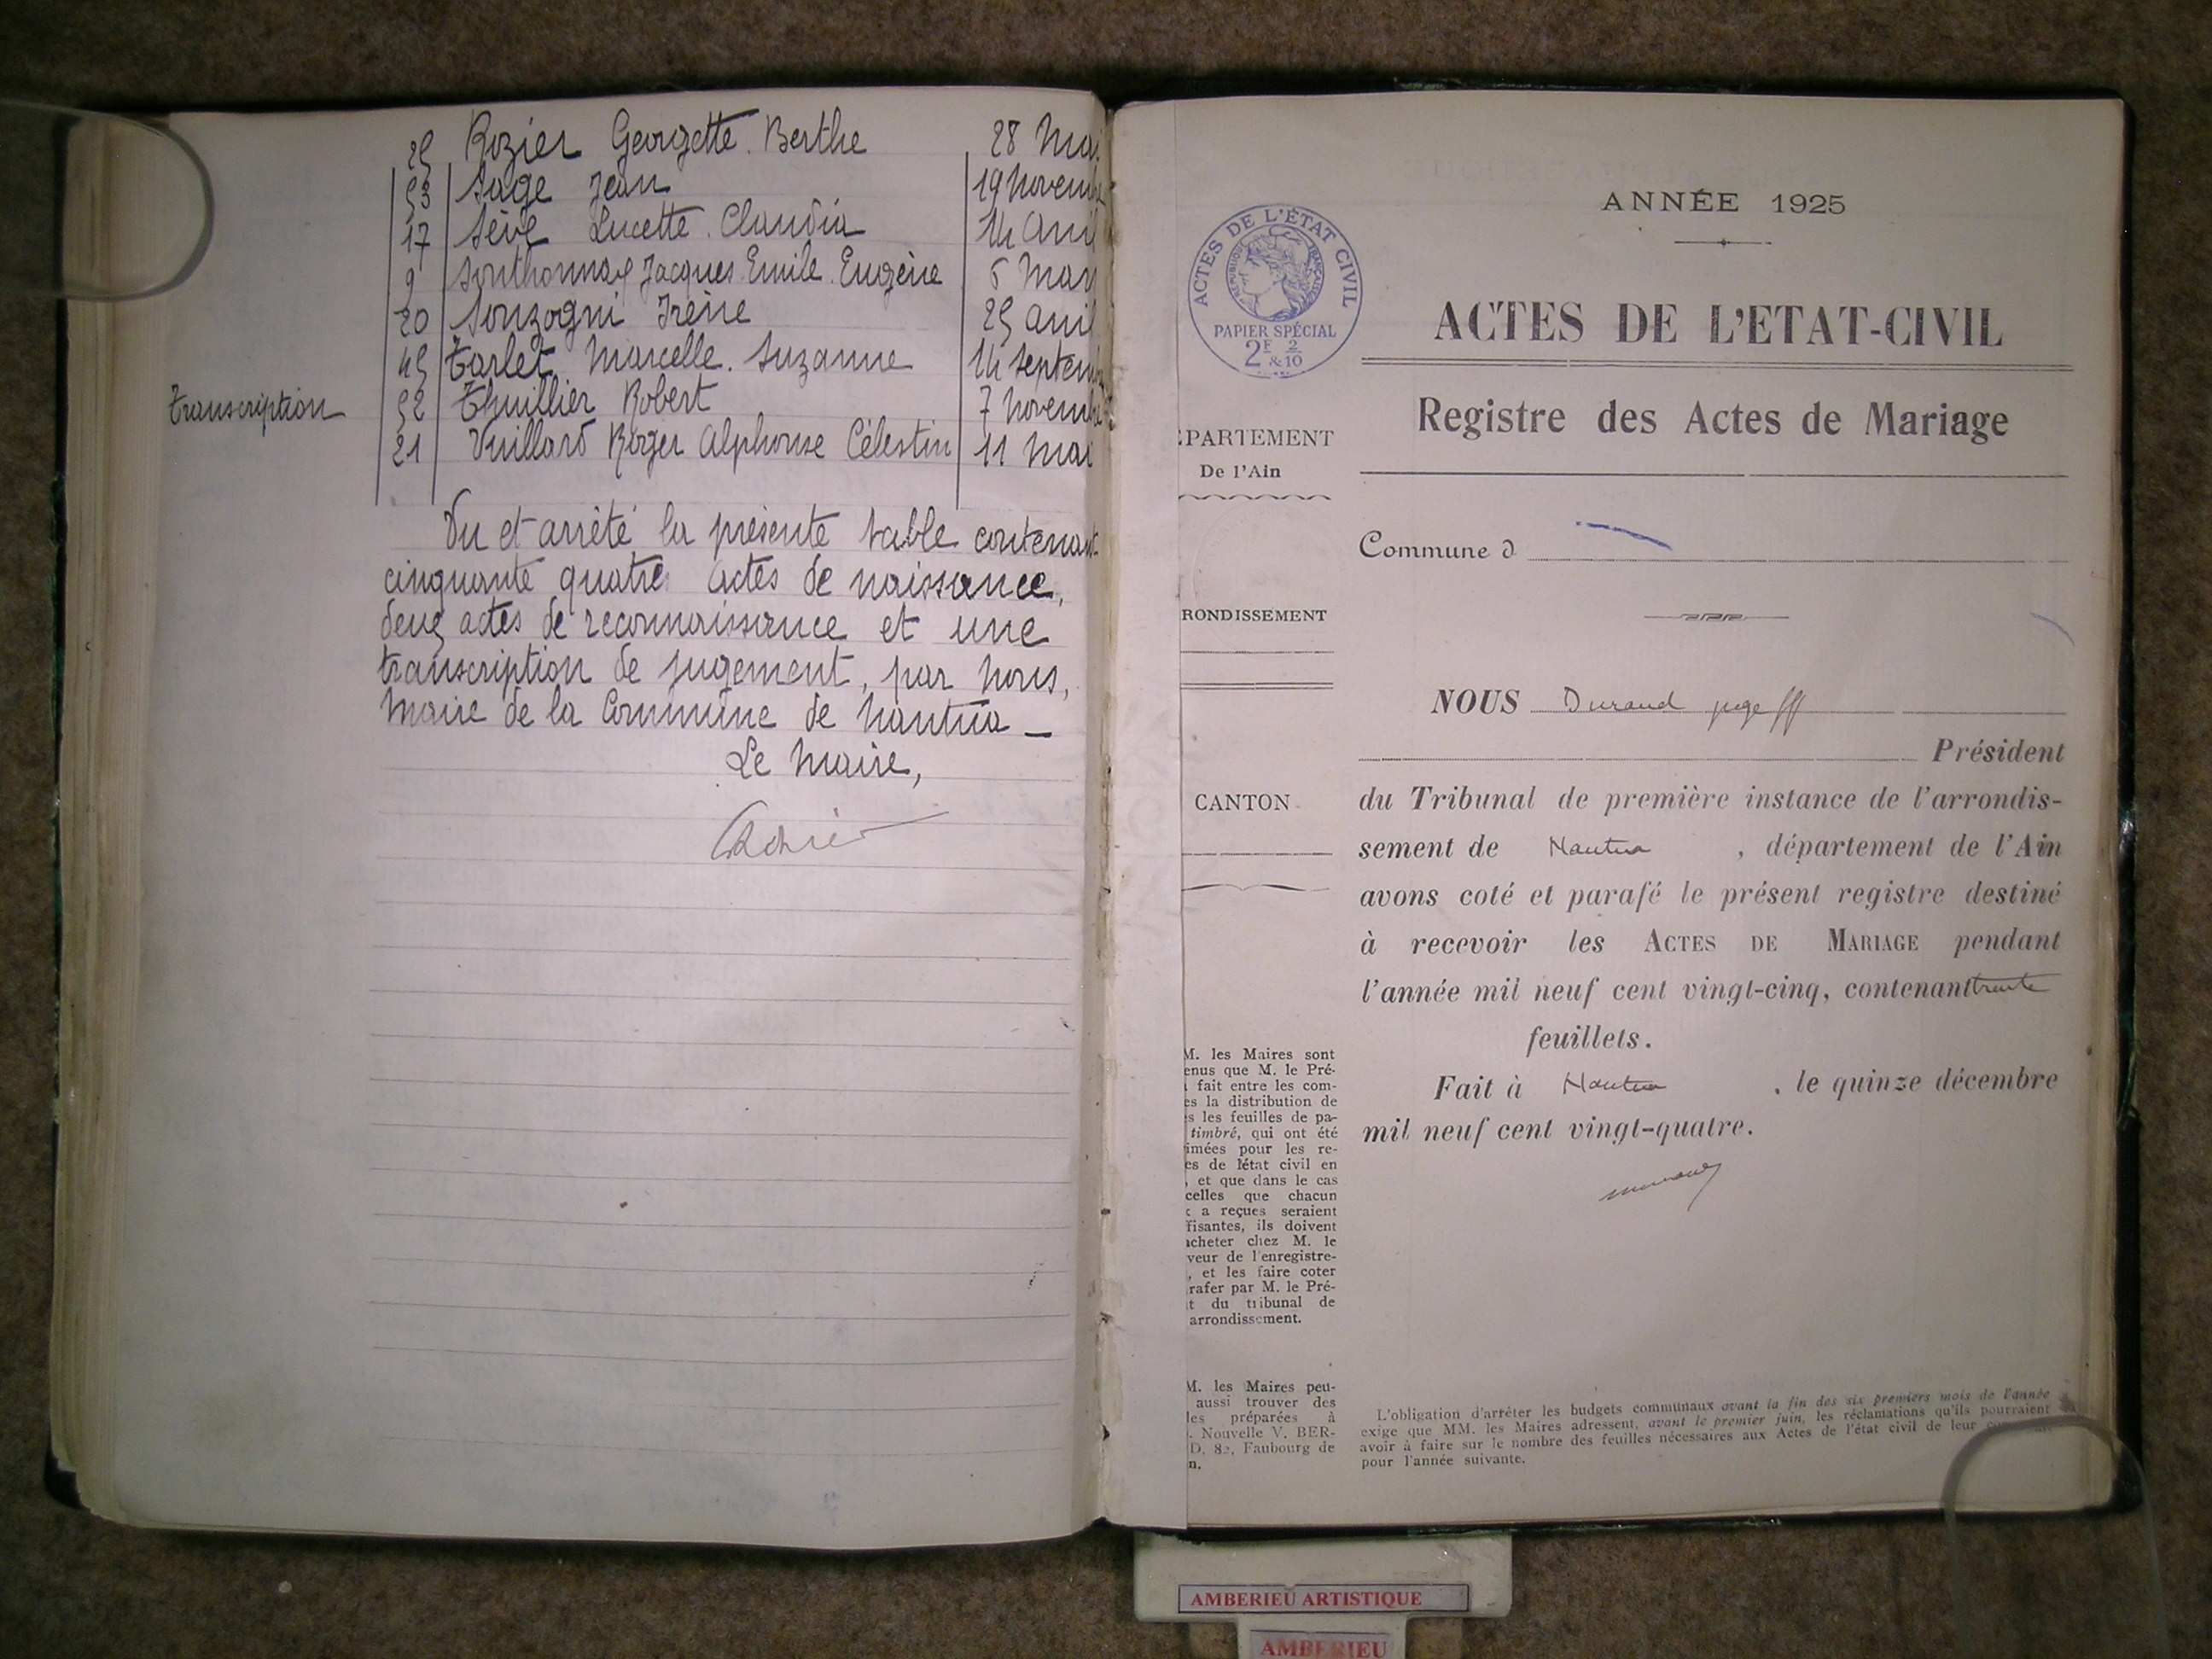 25 Rozier Georgette. Berthe 28 Mai
53 Sage Jean 19 Novemb
17 Sève Lucette. Claudia 14 Avril
9 Jacques. Emile. Eugène 5 Mars
20 Sonzogni Irène 25 avril
45 Tarlet Marcelle. Suzanne 14 Septemb
Transcription 52 Thuillier Robert 7 Novembr
21 Vuillard Roger Alphonse Célestin 11 Mai
Vu et arrêté la présente table contenant
cinquante quatre actes de naissance,
deux actes de reconnaissance et une
transcription de jugement, par nous,
Maire de la Commune de Nantua _
Le Maire,
ANNÉE 1925
ACTES DE L'ÉTAT CIVIL
RÉPUBLIQUE FRANÇAISE
PAPIER SPÉCIAL
2F 2/10
&
ACTES DE L'ETAT-CIVIL
Registre des Actes de Mariage
ÉPARTEMENT
De l'Ain
Commune d
RONDISSEMENT
CANTON
NOUS Durand juge ff
Président
du Tribunal de première instance de l'arrondis-
sement de Nantua , département de l'Ain
avons coté et parafé le présent registre destiné
à recevoir les ACTES DE MARIAGE pendant
l'année mil neuf cent vingt-cinq, contenant trente
feuillets.
Fait à Nantua , le quinze décembre
mil neuf cent vingt-quatre.
M. les Maires sont
enus que M. le Pré-
t fait entre les com-
es la distribution de
s les feuilles de pa-
timbré, qui ont été
imées pour les re-
es de l'état civil en
, et que dans le cas
celles que chacun
x a reçues seraient
fisantes, ils doivent
acheter chez M. le
veur de l'enregistre-
, et les faire coter
rafer par M. le Pré-
t du tribunal de
arrondissement.
M. les Maires peu-
aussi trouver des
les préparées à
. Nouvelle V. BER-
D, 82, Faubourg de
n.
L'obligation d'arrêter les budgets communaux avant la fin des six premiers mois de l'année
exige que MM. les Maires adressent, avant le premier juin, les réclamations qu'ils pourraient
avoir à faire sur le nombre des feuilles nécessaires aux Actes de l'état civil de leur
pour l'année suivante.
AMBERIEU ARTISTIQUE
AMBERIEU